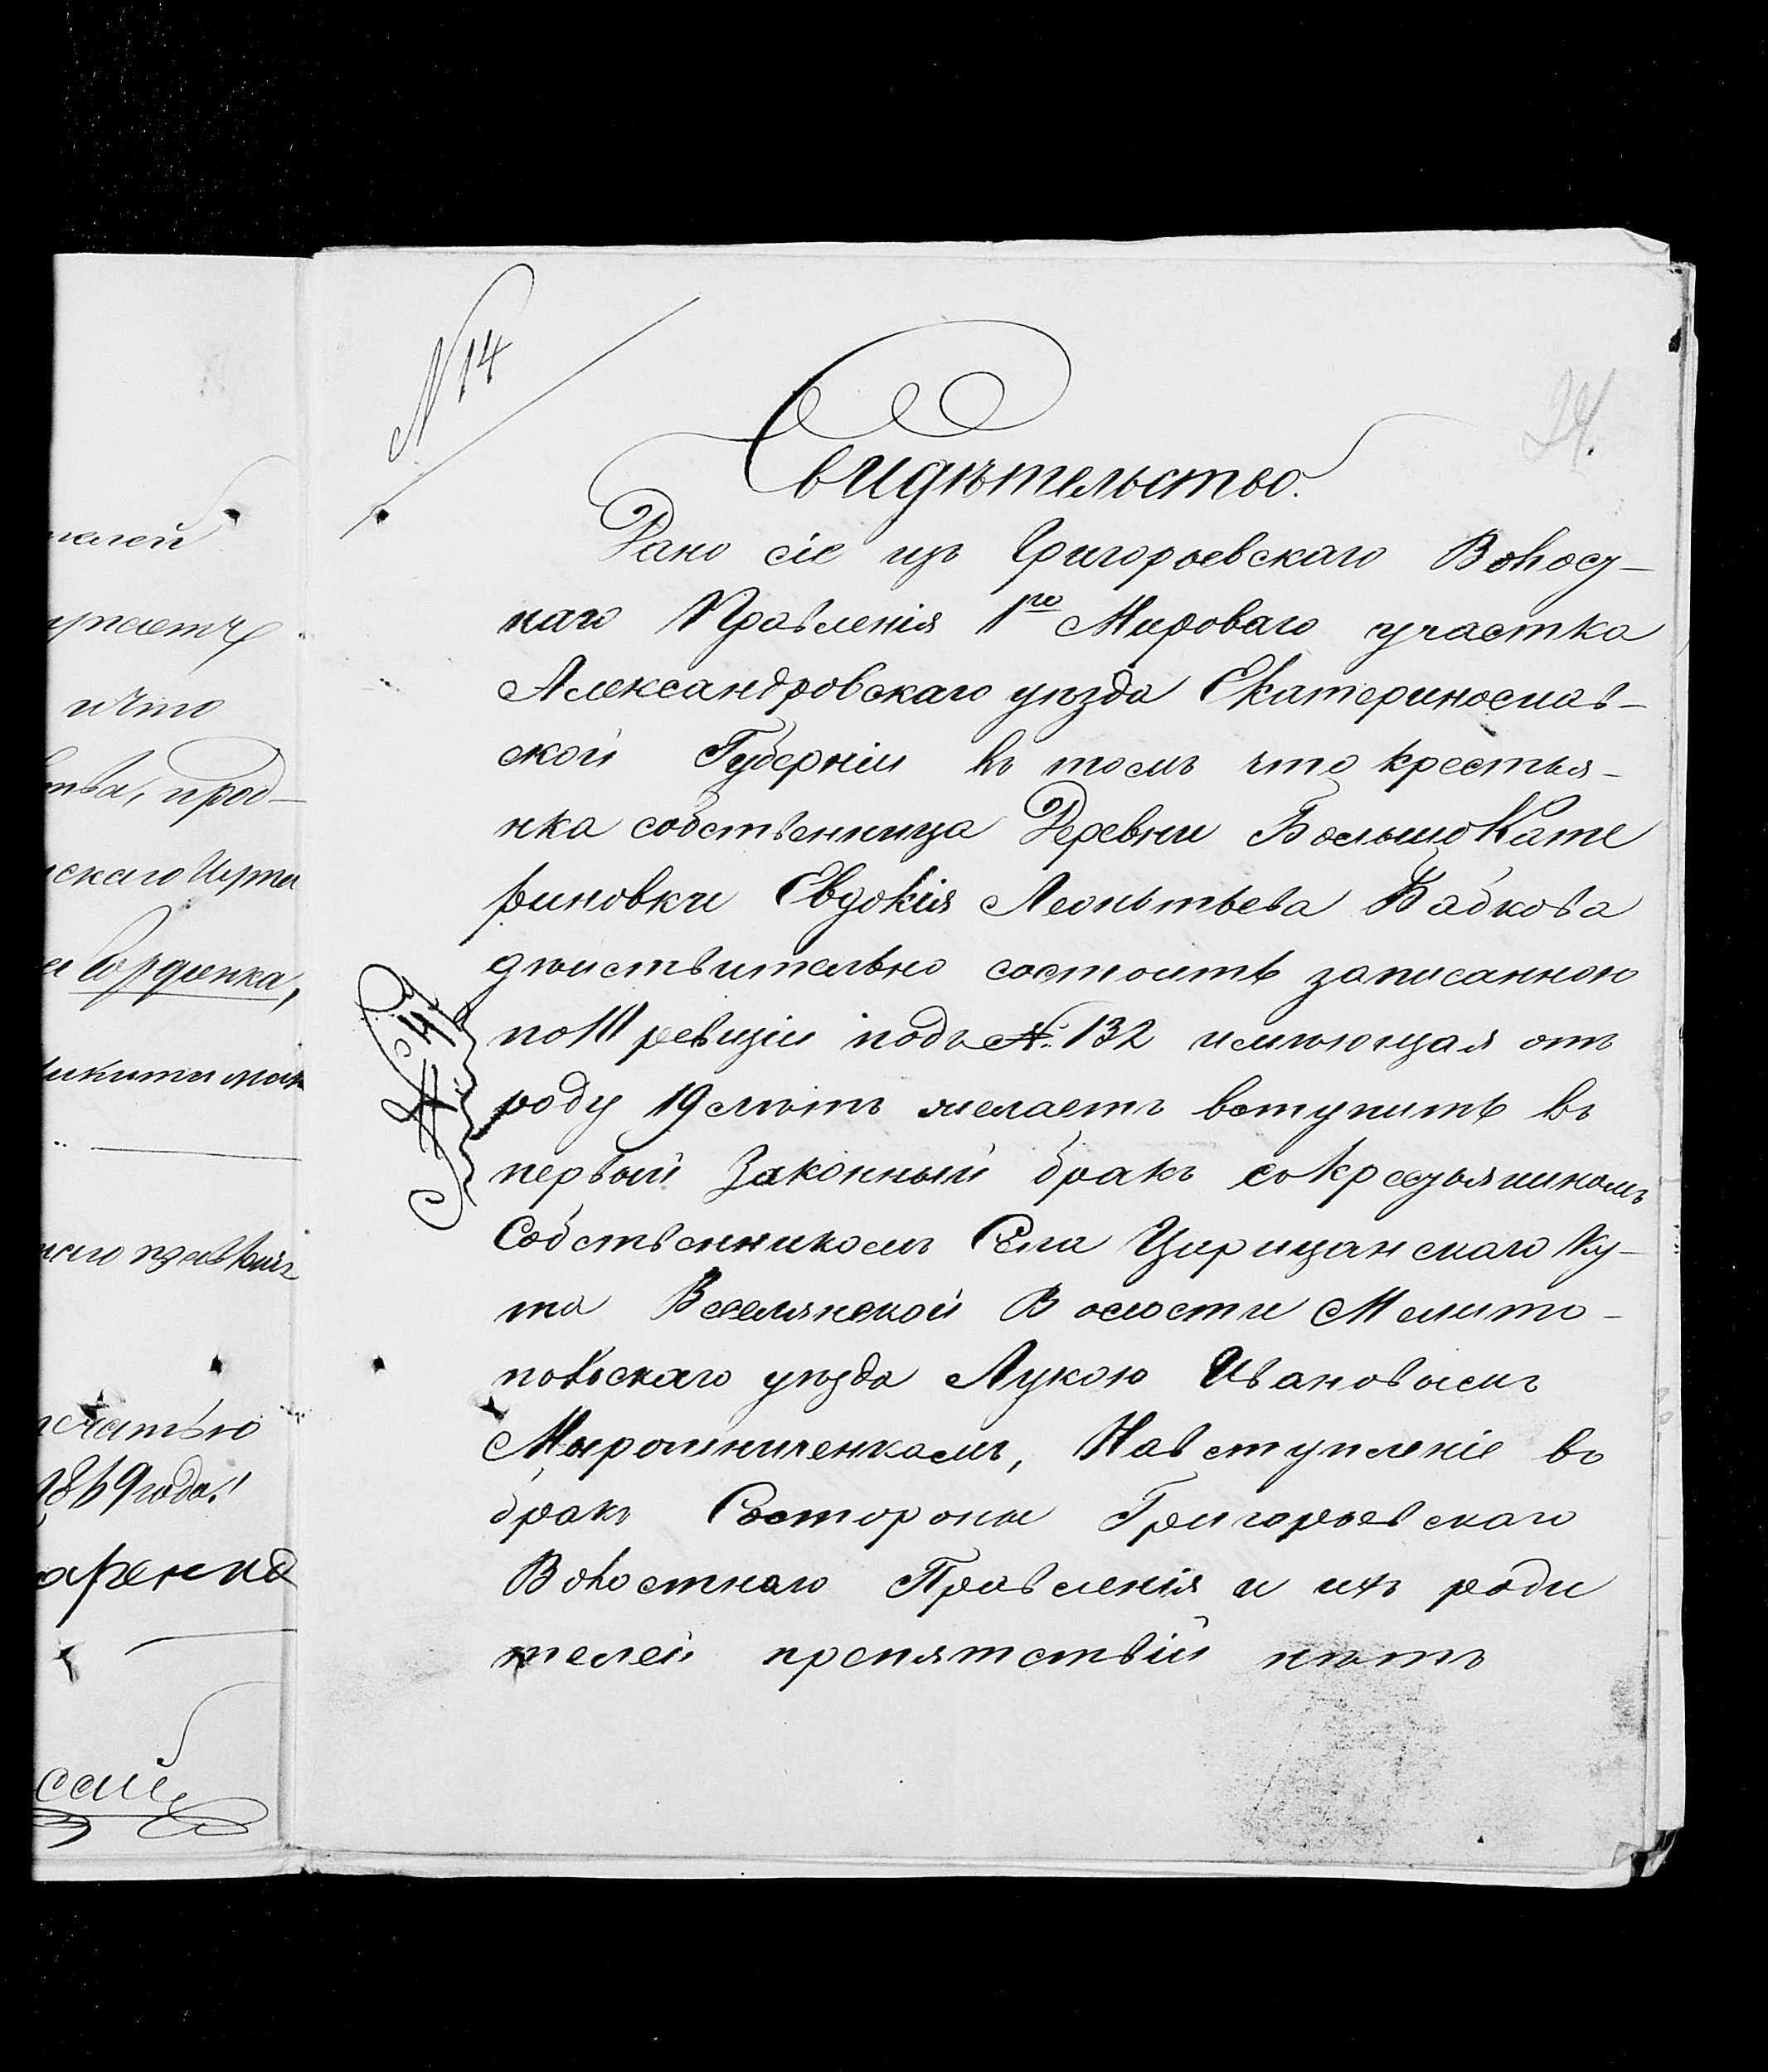 N 14
24.
Свидѣтельство.
Дано сіе изъ Григорьевскаго Волост-
наго Правленія 1го Мироваго участка
Александровскаго уѣзда Екатеринослав-
ской Губерніи въ томъ что крестья-
нка собственница Деревни БольшоКате
риновки Евдокія Леонтьева Бабкова
дѣиствительно состоитъ записанною
по ревизіи подъ №. 132 имѣющая отъ
роду 19 лѣтъ желаетъ вступить въ
первый Законный бракъ съ Крестьяниномъ
Собственникомъ Села Царицанскаго Ку-
та Веселянской Волости Мелито-
польскаго уѣзда Лукою Ивановымъ
Мирошниченкомъ, На вступленіе въ
бракъ Состороны Григорьевскаго
Волостнаго Правленія и ихъ роди
телей препятствій нѣтъ
ичто
скаго
ечатью
1869 года.!